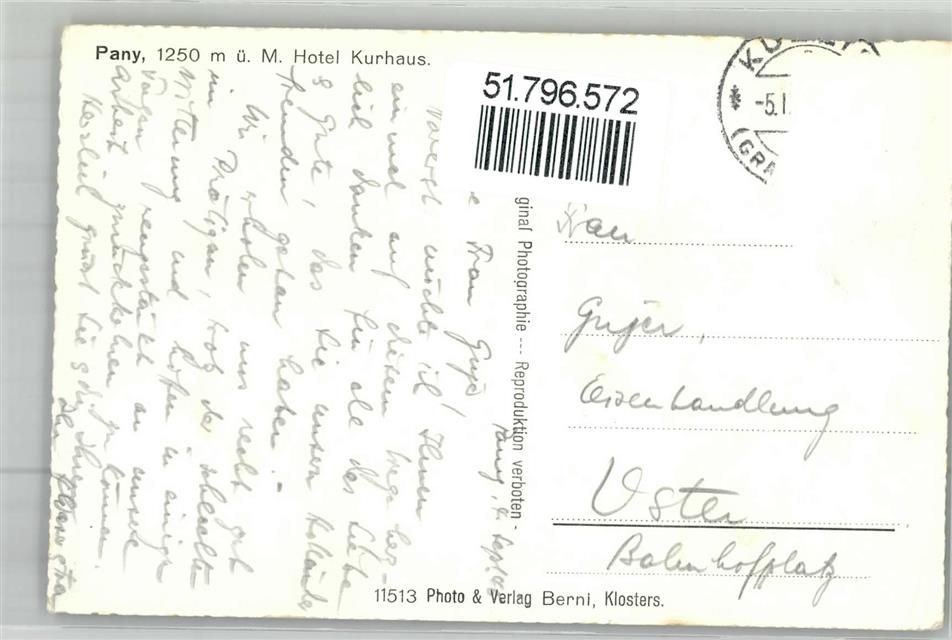 Pany, 1250 m ü. M. Hotel Kurhaus.
51.796.572
* KÜBLI
-5.I
(GRA
Pany, 4. Sept.
Frau Gujer!
Vorerst möchte ich Ihnen
einmal auf diesem Wege herz-
lich danken für alle das Liebe
& Gute, das Sie unsern
Fremden getan haben. -
Wir erholen uns recht gut
im Prätigau, trotz der schlechten
Witterung und hoffen in einigen
Tagen neugestärkt an unsere
Arbeit zurückkehren zu können.
Herzlich grüsst Sie &
ginal Photographie --- Reproduktion verboten -
Frau
Gujer,
Eisenhandlung
Uster
Bahnhofplatz
11513 Photo & Verlag Berni, Klosters.